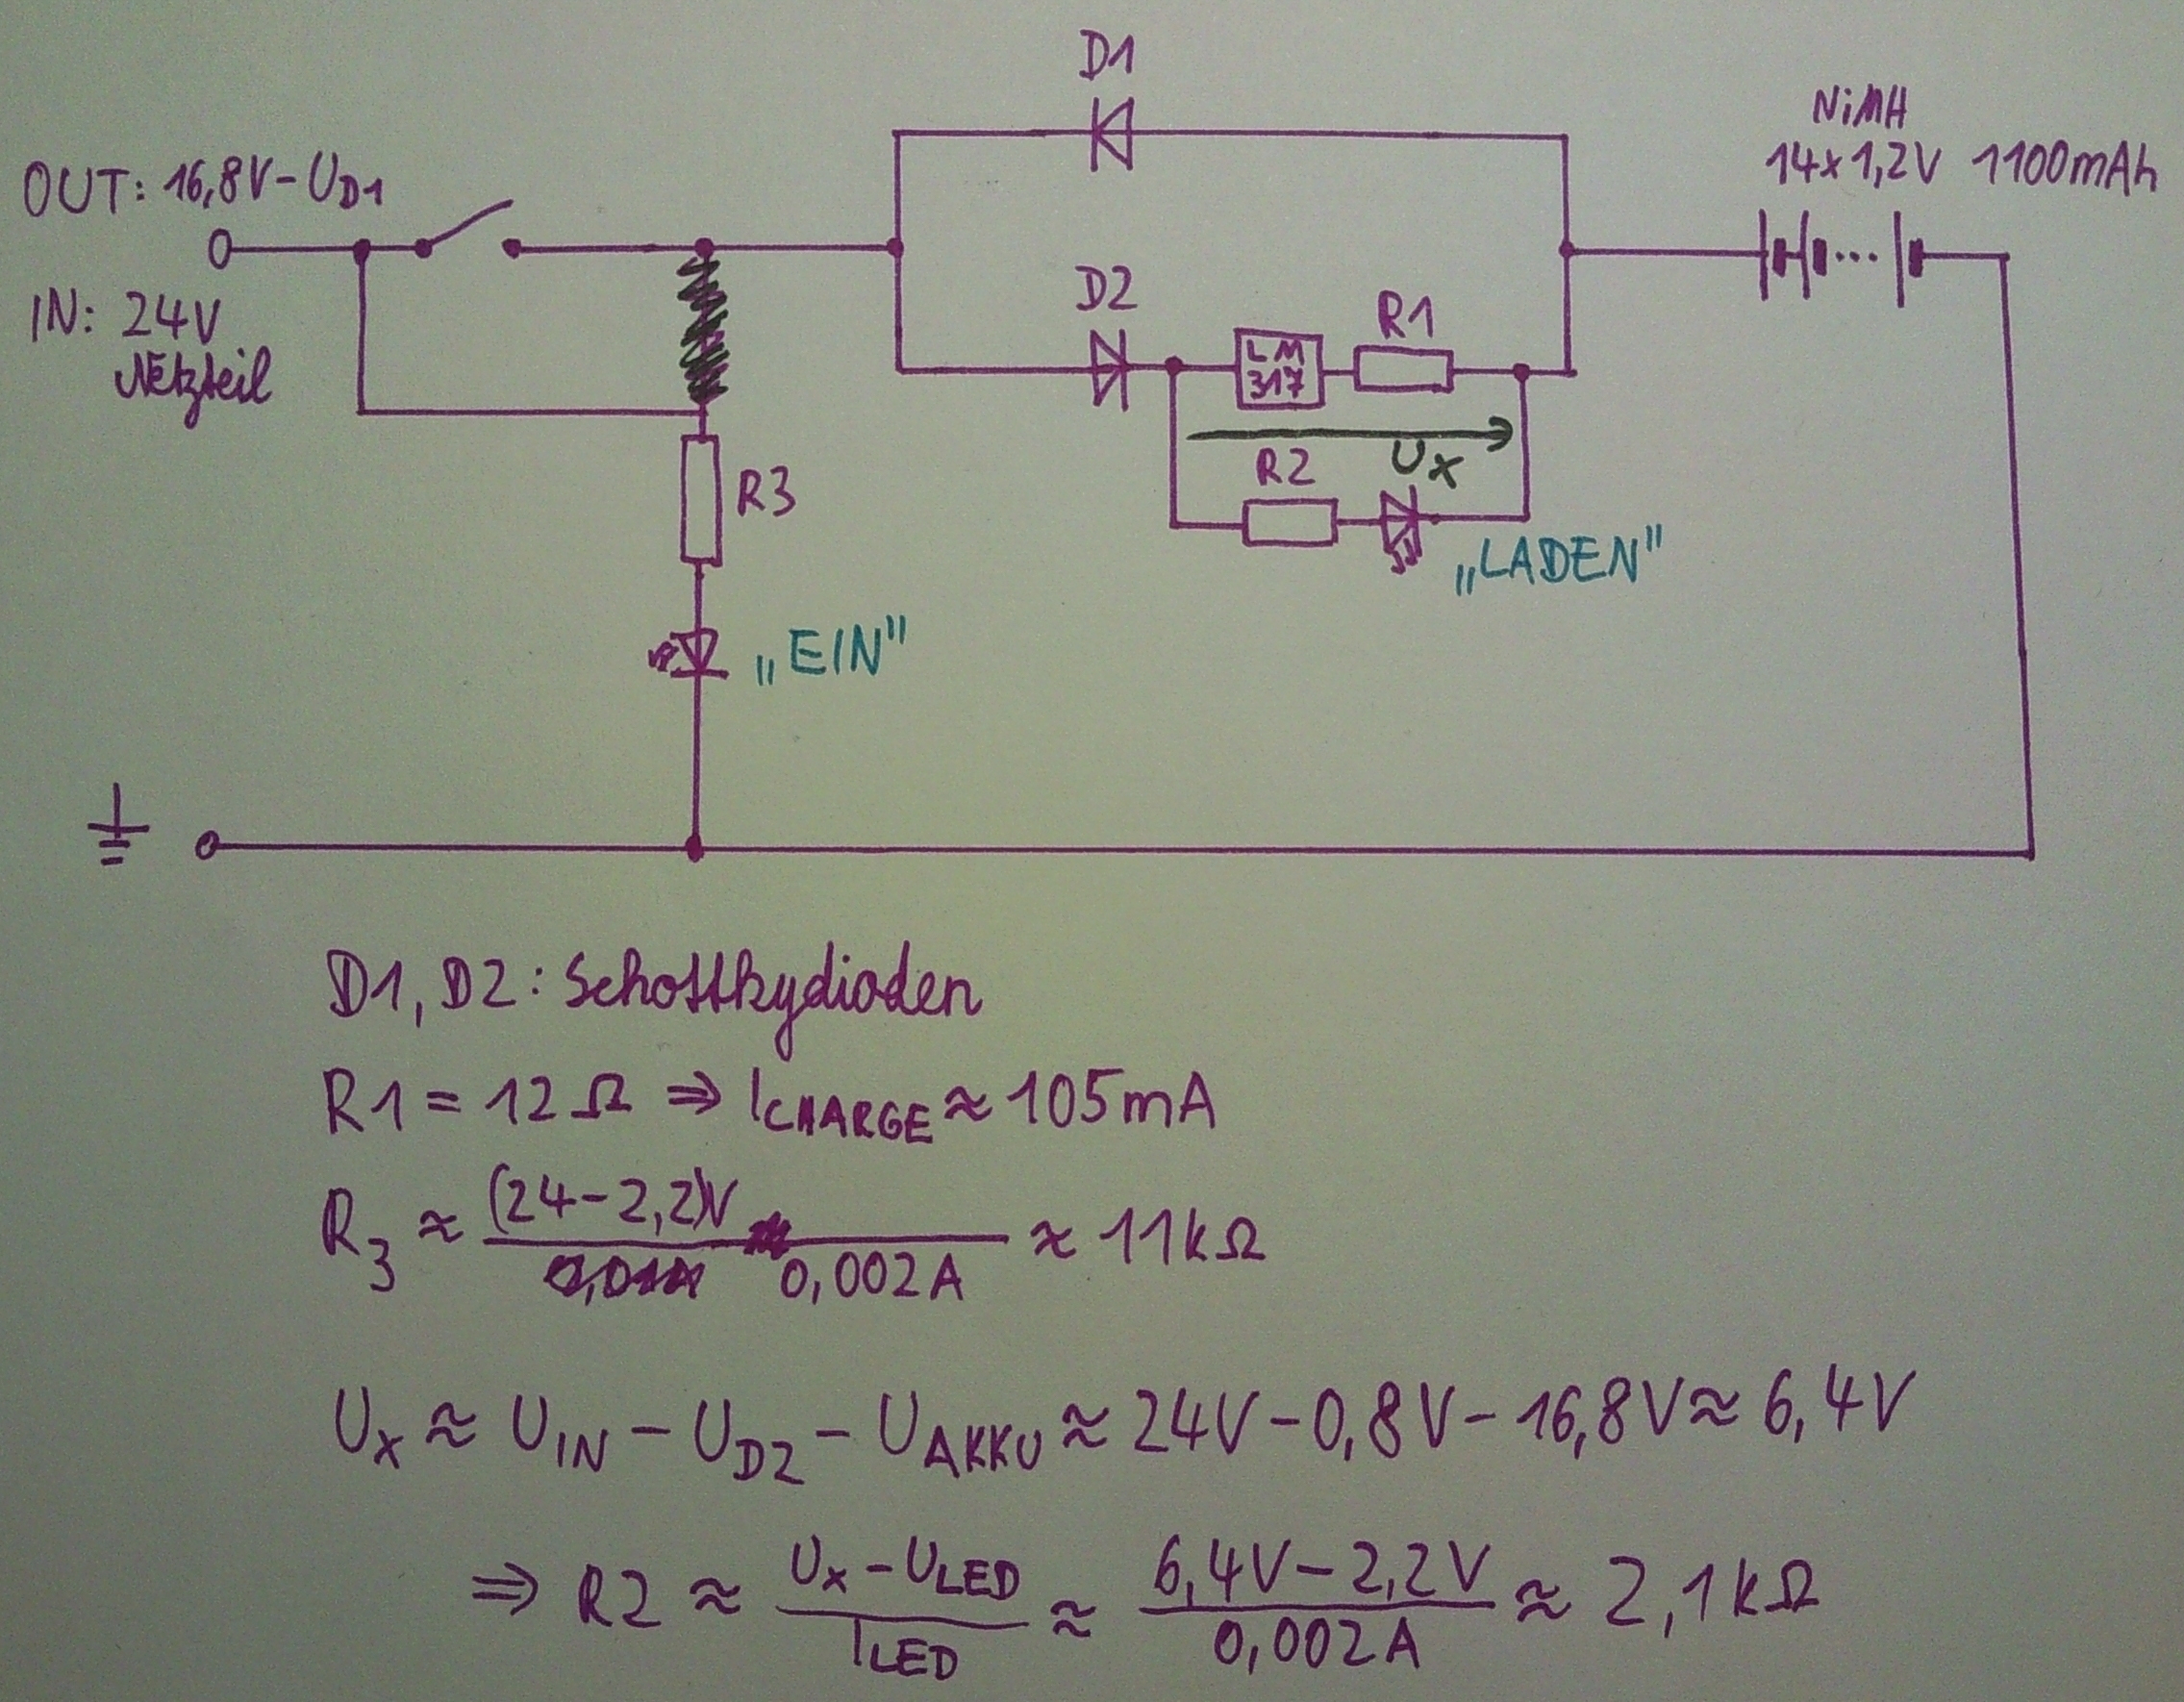 D1
NiMH
14x1,2V 1100mAh
OUT: 16,8V-U_D1
IN: 24V
Netzteil
D2
LM
317
R1
U_X
R2
R3
„LADEN"
„EIN"
D1, D2: Schottkydioden
R1 = 12 Ω ⇒ I_CHARGE ≈ 105mA
R_3 ≈ (24-2,2)V / 0,002A ≈ 11kΩ
U_X ≈ U_IN - U_D2 - U_AKKU ≈ 24V - 0,8V - 16,8V ≈ 6,4V
⇒ R2 ≈ U_X - U_LED / I_LED ≈ 6,4V - 2,2V / 0,002A ≈ 2,1kΩ